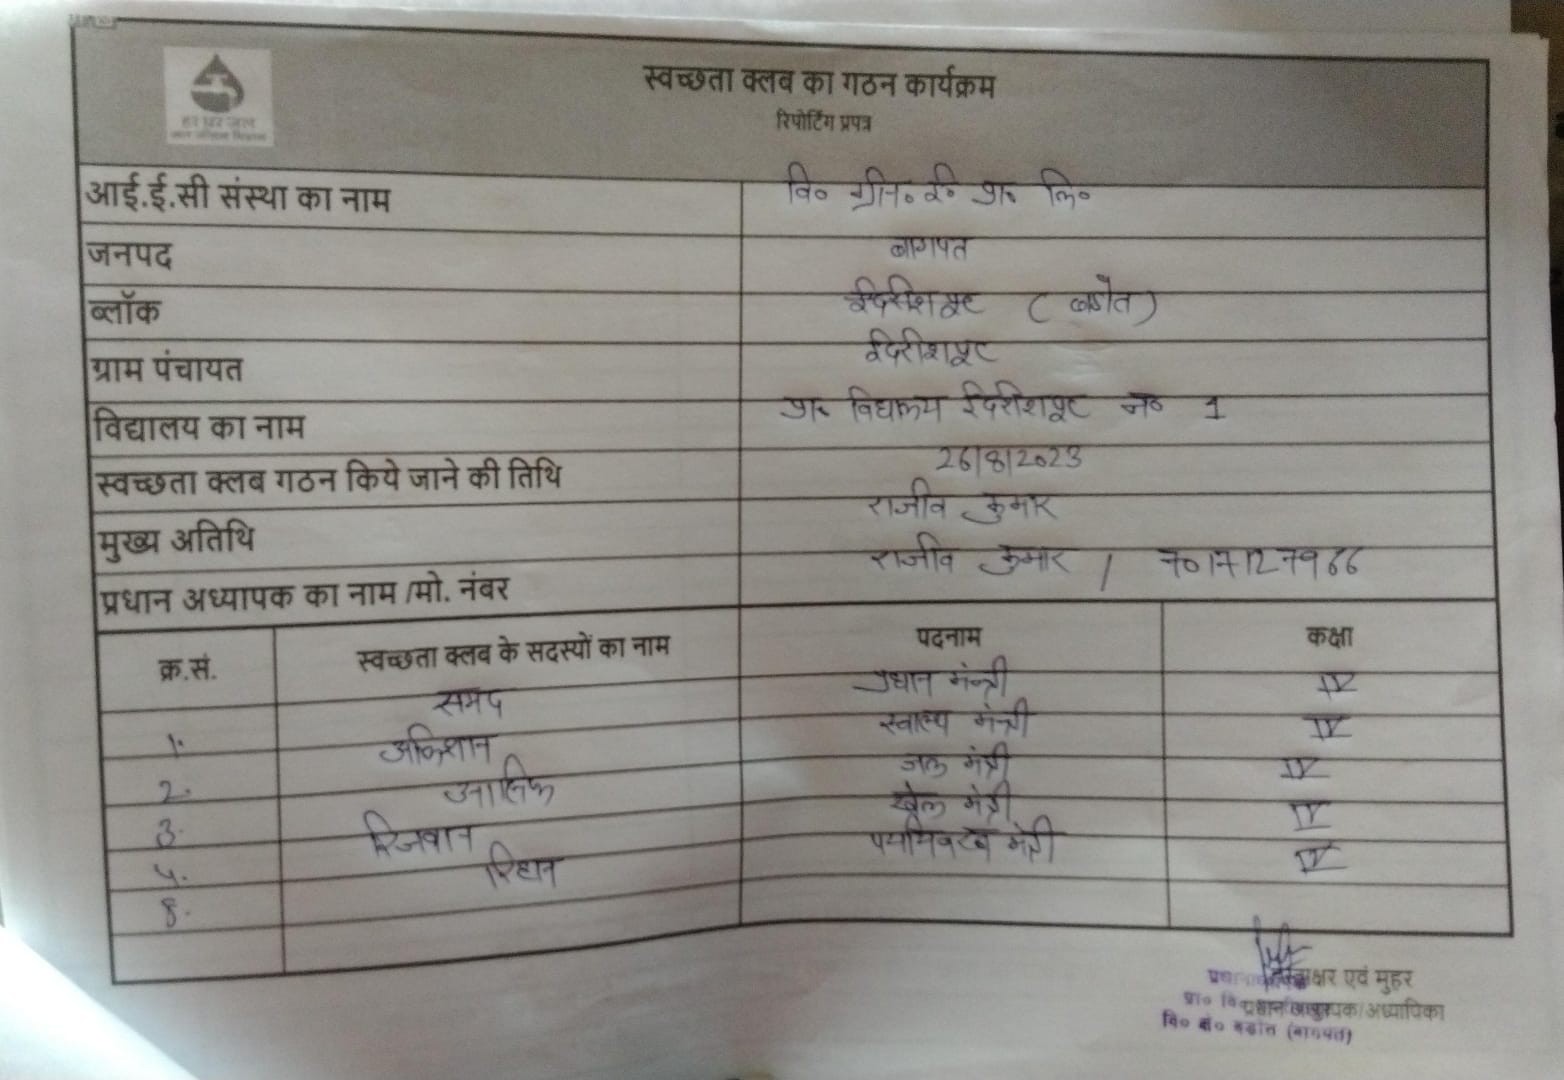 हर घर जल
स्वच्छता क्लब का गठन कार्यक्रम
रिपोर्टिंग प्रपत्र
आई.ई.सी संस्था का नाम वि० ग्रीन० ई० प्रा० लि०
जनपद बागपत
ब्लॉक ईदरीशपुर (बडौत)
ग्राम पंचायत ईदरीशपुर
विद्यालय का नाम प्रा० विद्यालय ईदरीशपुर न० 1
स्वच्छता क्लब गठन किये जाने की तिथि 26/8/2023
मुख्य अतिथि राजीव कुमार
प्रधान अध्यापक का नाम /मो. नंबर राजीव कुमार / 7017127966
क्र.सं. स्वच्छता क्लब के सदस्यों का नाम पदनाम कक्षा
1. समद प्रधान मंन्त्री IV
2. स्वास्थ्य मंत्री IV
3. जल मंत्री IV
4. रिजवान खेल मंत्री IV
5. रिहान मंत्री IV
हस्ताक्षर एवं मुहर
प्रधान अध्यापक/अध्यापिका
वि० क्षे० बडौत (बागपत)